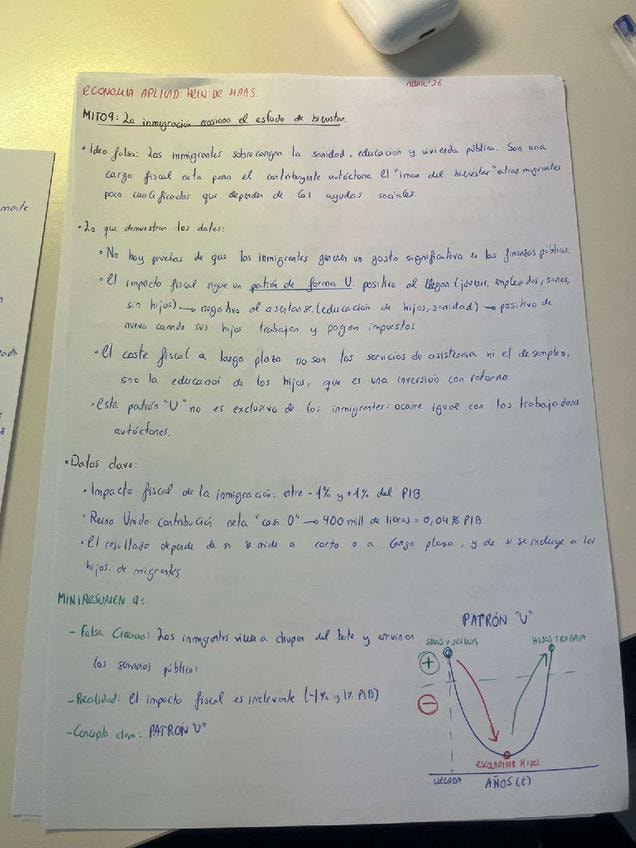 ECONOMIA APLICAD: HEIN DE HAAS.
ABRIL'26
MITO 9: La inmigración erosiona el estado de bienestar.
• Idea falsa: Los inmigrantes sobrecargan la sanidad, educación y vivienda pública. Son una
carga fiscal neta para el contribuyente autóctono. El "iman del bienestar" atrae migrantes
poco cualificados que dependen de las ayudas sociales.
• Lo que demuestran los datos:
• No hay pruebas de que los inmigrantes generen un gasto significativo en las finanzas públicas.
• El impacto fiscal sigue un patrón de forma U: positivo al llegar (jóvenes, empleados, sanos,
sin hijos) → negativo al asentarse (educación de hijos, sanidad) → positivo de
nuevo cuando sus hijos trabajan y pagan impuestos
• El coste fiscal a largo plazo no son los servicios de asistencia ni el desempleo,
sino la educación de los hijos, que es una inversión con retorno.
• Este patrón "U" no es exclusivo de los inmigrantes: ocurre igual con los trabajadores
autóctonos.
• Datos clave:
• Impacto fiscal de la inmigración: entre -1% y +1% del PIB.
• Reino Unido: contribución neta "casi 0" → 400 mill de libras = 0,04% PIB
• El resultado depende de si se mide a corto o a largo plazo, y de si se incluye a los
hijos de migrantes
MINIRESUMEN 9:
- Falsa Creencia: Los inmigrantes vienen a chupar del bote y arruinan
los servicios públicos
- Realidad: El impacto fiscal es irrelevante (-1% y 1% PIB)
- Concepto clave: PATRÓN "U"
PATRÓN "U"
SANOS Y JOVENES
HIJOS TRABAJA
+
-
ESCOLARIZAR HIJOS
LLEGADA
AÑOS (t)